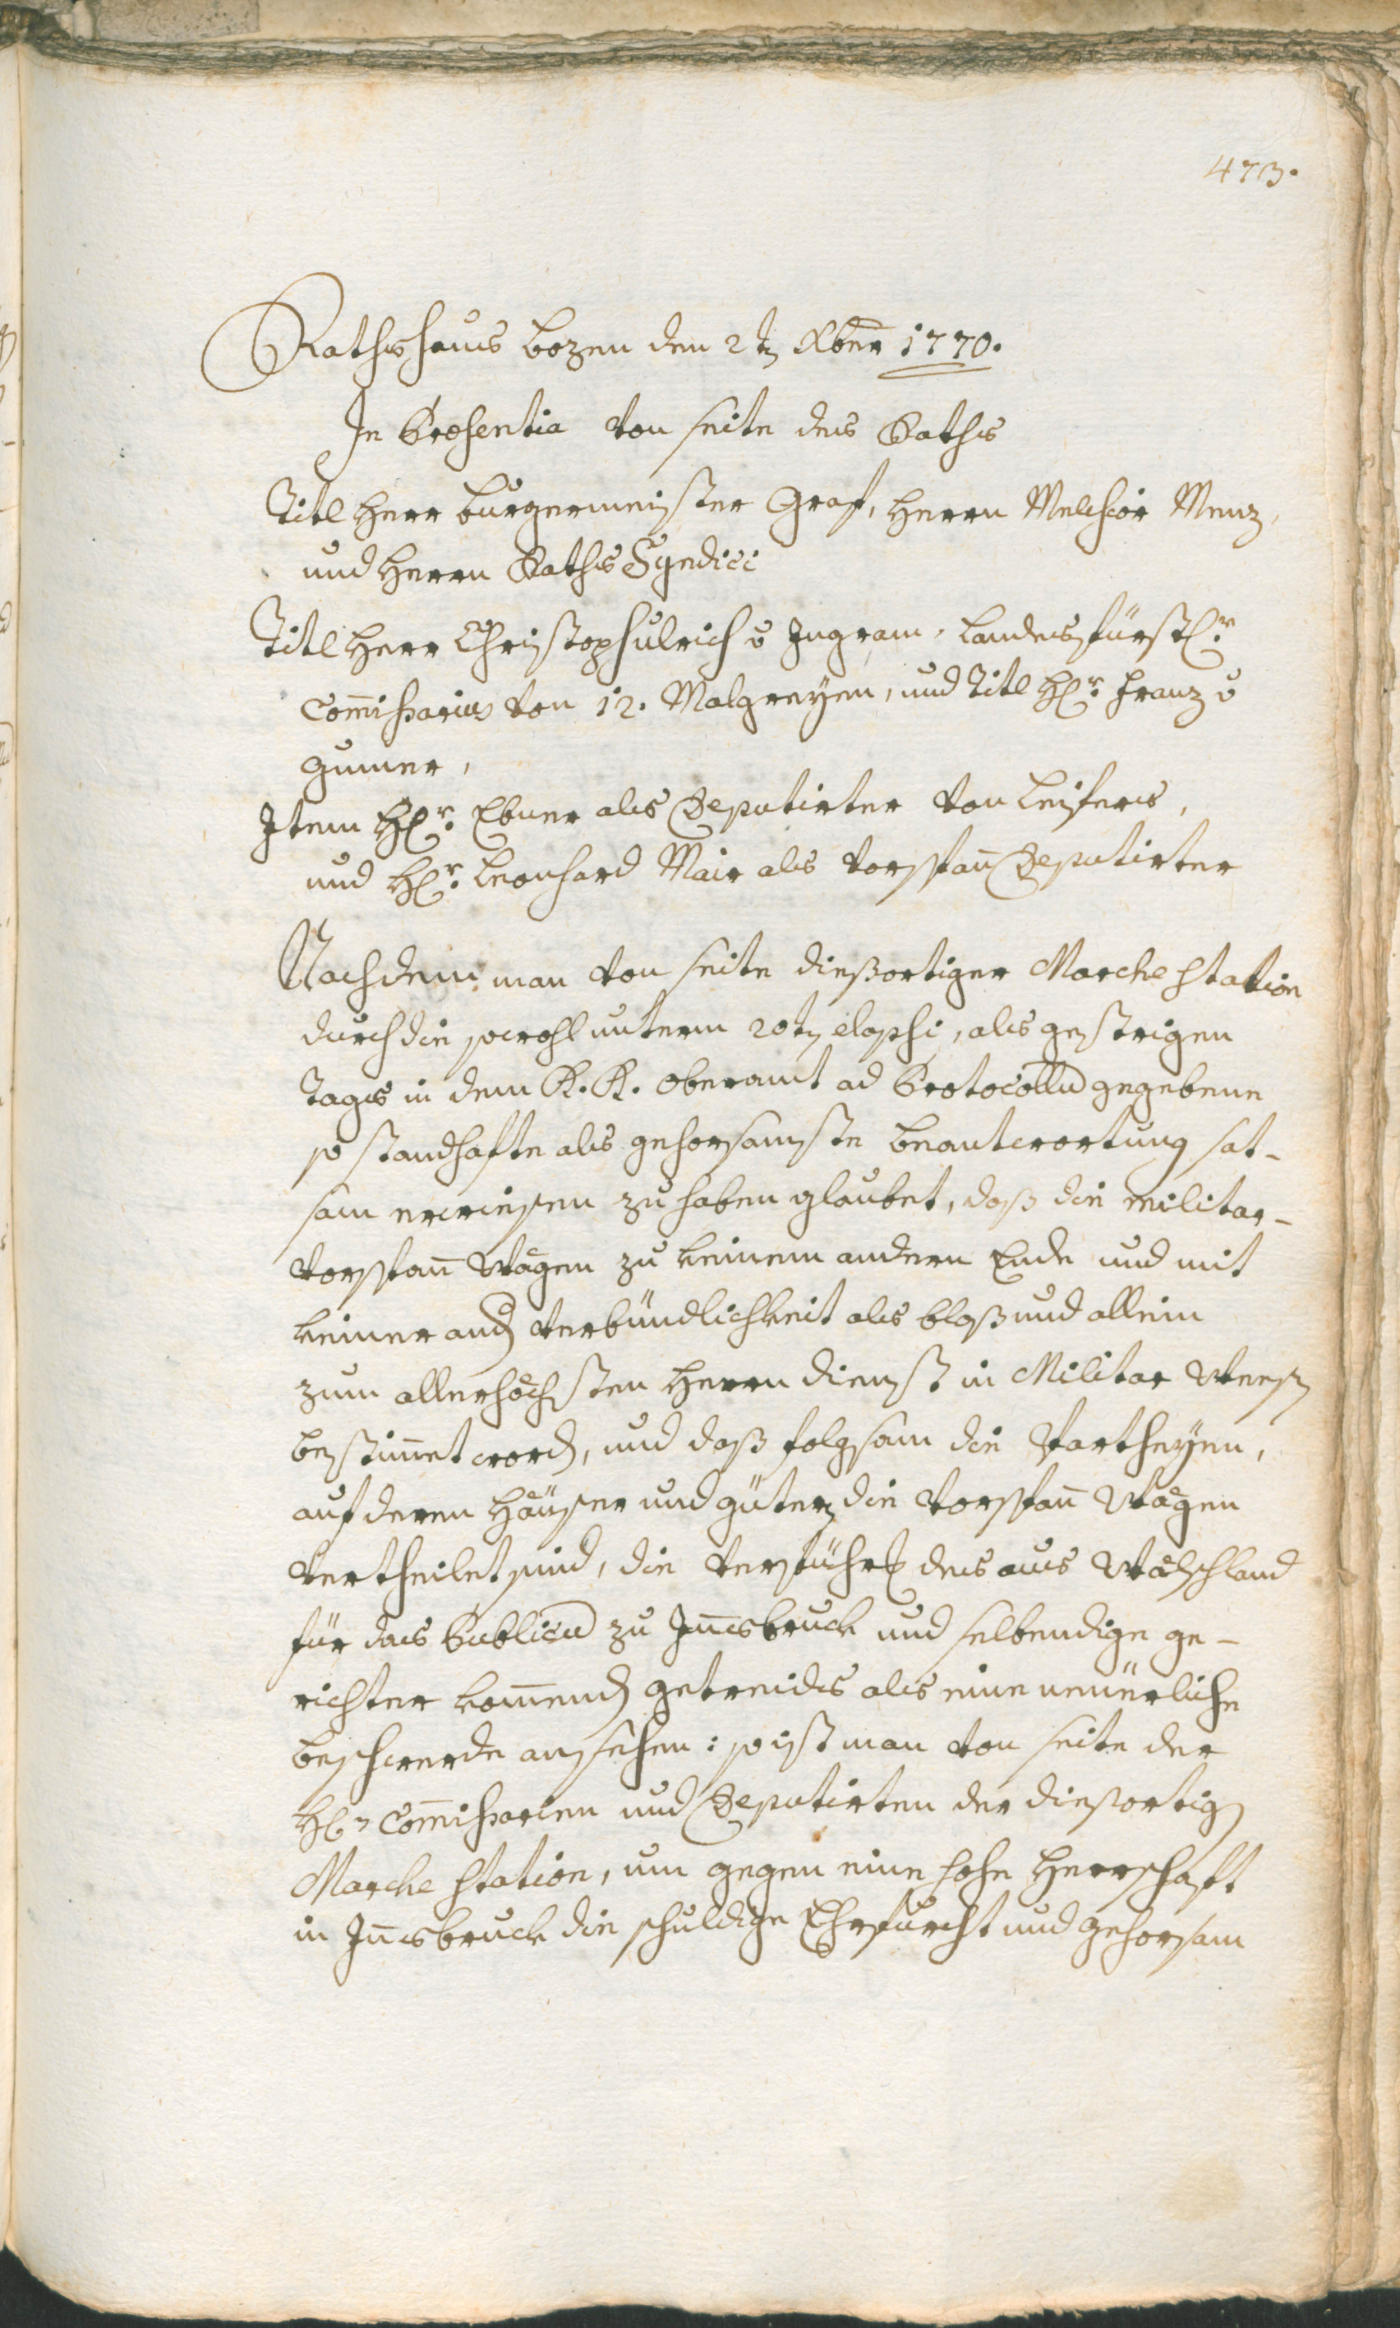 473.
Rathshaus Bozen den 2t Xber 1770.
In Præsentia von seite des Raths
Titl Herr Burgermeister Graf, Herrn Melchior Menz,
und Herrn Raths Syndici
Titl Herr Christoph Ulrich v Ingram, Landesfürstlr
Com̄issarius von 12. Malgreyen, und Titl Hr. Franz v
Gumer,
Item Hr. Ebner als Deputirter von Leifers,
und Hr. Leonhard Mair als Vorspan̄ Deputirter
Nachdem man von seite dießortiger Marche station
durch die sowohl unterm 20t elapsi, als gestrigen
Tags in dem K. K. Oberamt ad Protocollu gegebene
so standhafte als gehorsamste beantwortung sat-
sam erwiesen zu haben glaubet, daß die militar-
Vorspan̄ Wägen zu keinem andern Ende und mit
keiner and Verbündlichkeit als bloß und allein
zum allerhöchsten Herrn dienst in Militar Weesen
bestim̄et word, und daß folgsam die Partheyen,
auf deren Häuser und güter die Vorspan̄ Wägen
Vertheilet sind, die Verführ des aus Wälschland
für das Publicu zu In̄sbruck und selbendige ge-
richter kom̄end getreids als eine neuerliche
beschwerde ansehen: so ist man von seite der
H. Com̄issarien und Deputirten der dießortig
Marche station, um gegen eine hohe Herrschaft
in In̄sbruck die schuldige Ehrfurcht und gehorsam